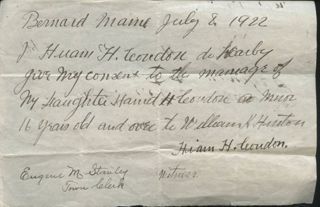 Bernard Maine July 8, 1922
I Hiram H. Condon do hearby
give My consent to the marriage of
My daughter H Condon a Minor
16 years old and over to William Huston
Hiram H. Condon.
Eugene M. Stanley
Town Clerk Witness